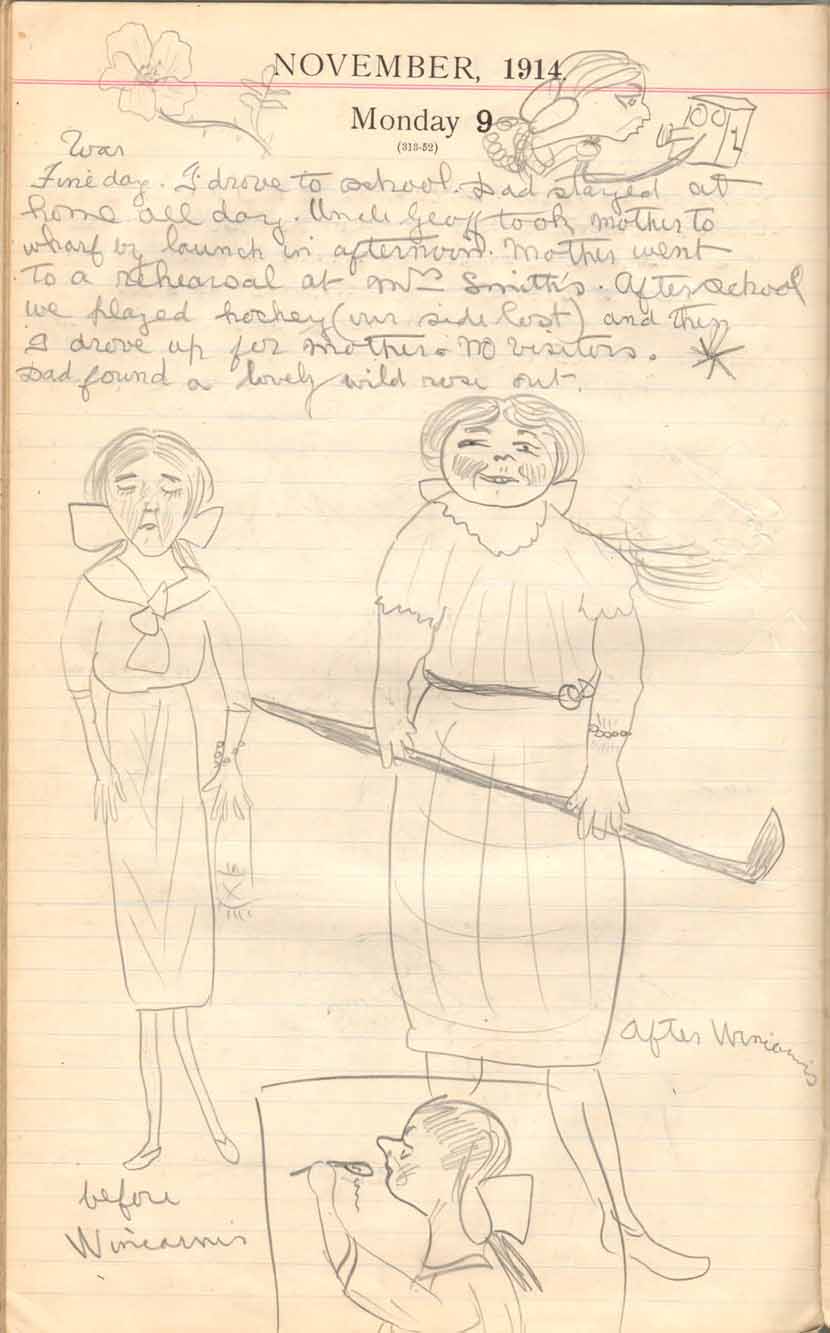 NOVEMBER, 1914.
Monday 9
(313-52)
War
Fine day. I drove to school. Dad stayed at
home all day. Uncle Geoff took mother to
wharf by launch in afternoon. Mother went
to a rehearsal at Mrs Smith's. After school
we played hockey (our side lost) and then
I drove up for mother. No visitors.
Dad found a lovely wild rose out.
After Wincarnis
before
Wincarnis